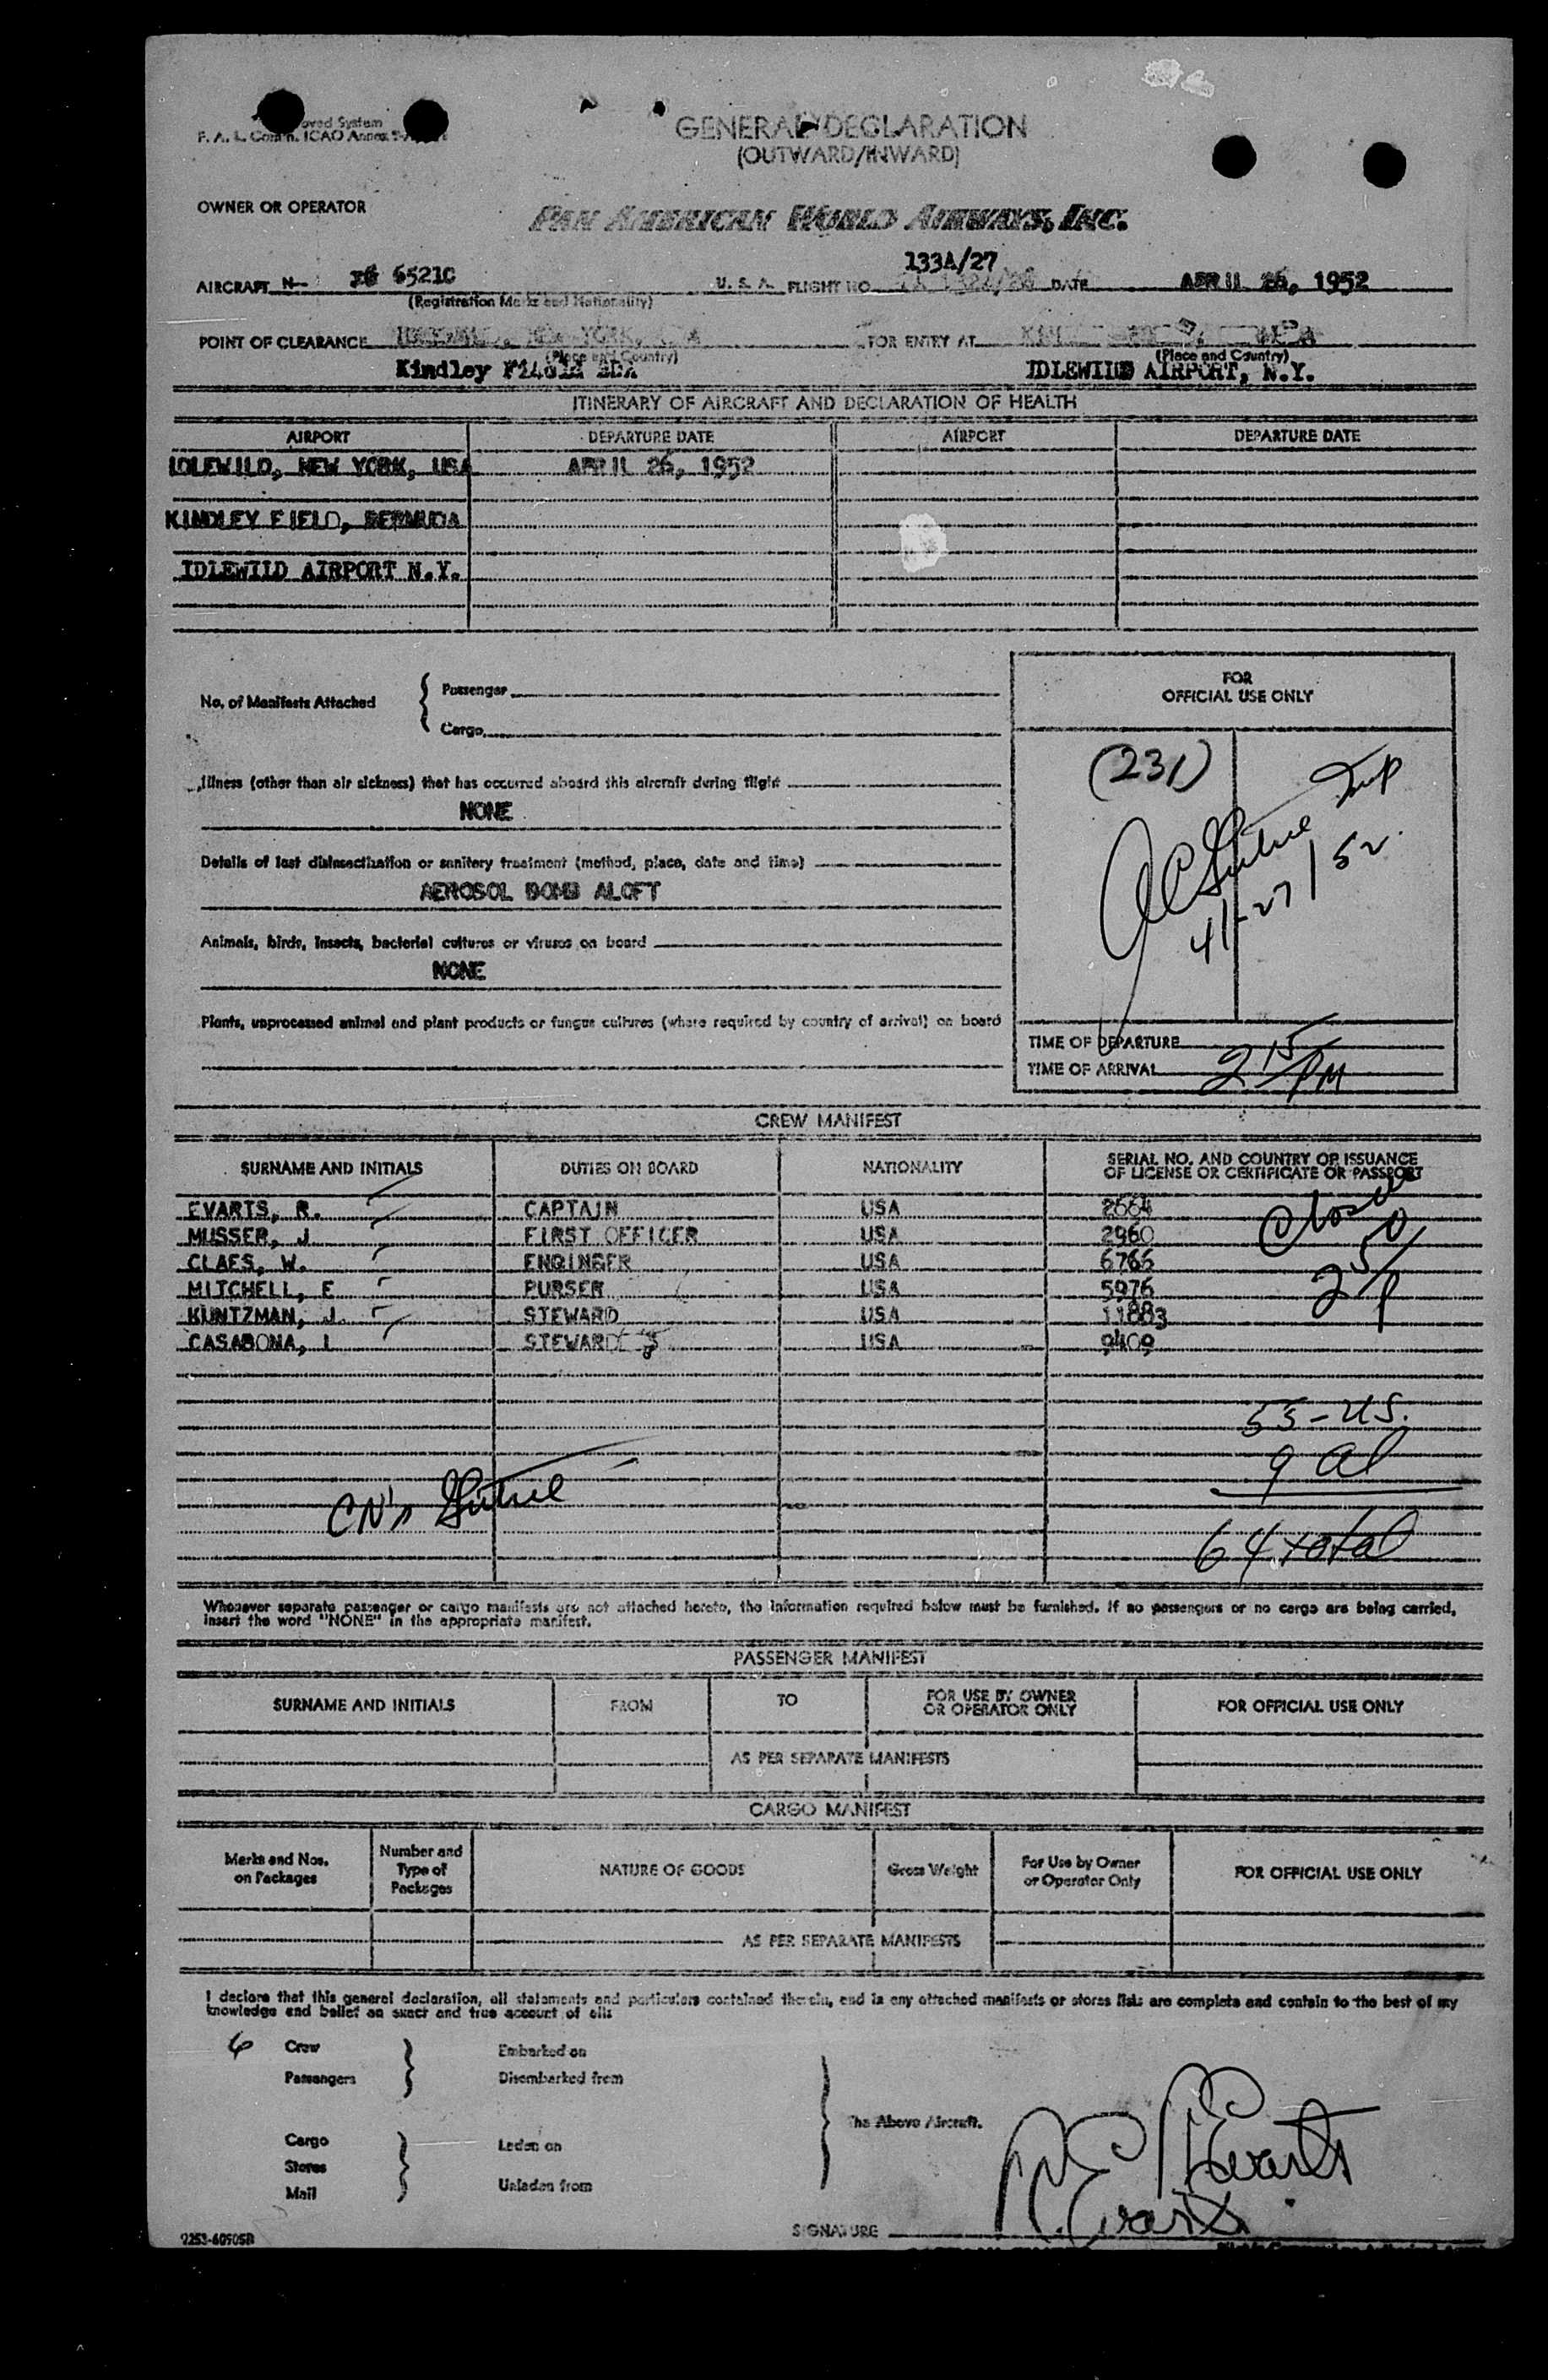 oved System
F. A. L. Comm. ICAO Annex 9
GENERAL DECLARATION
(OUTWARD/INWARD)
OWNER OR OPERATOR
PAN AMERICAN WORLD AIRWAYS, INC.
133A/27
AIRCRAFT N- 65210 U. S. A. FLIGHT NO. DATE APRIL 26, 1952
(Registration Marks and Nationality)
POINT OF CLEARANCE NEW YORK, FOR ENTRY AT
(Place and Country) (Place and Country)
Kindley BDA IDLEWILD AIRPORT, N.Y.
ITINERARY OF AIRCRAFT AND DECLARATION OF HEALTH
AIRPORT DEPARTURE DATE AIRPORT DEPARTURE DATE
IDLEWILD, NEW YORK, USA APRIL 26, 1952
KINDLEY FIELD, BERMUDA
IDLEWILD AIRPORT N.Y.
No. of Manifests Attached { Passenger
Cargo
FOR
OFFICIAL USE ONLY
(231)
4/27/52
Illness (other than air sickness) that has occurred aboard this aircraft during flight
NONE
Details of last disinsectization or sanitary treatment (method, place, date and time)
AEROSOL BOMB ALOFT
Animals, birds, insects, bacterial cultures or viruses on board
NONE
Plants, unprocessed animal and plant products or fungus cultures (where required by country of arrival) on board
TIME OF DEPARTURE
TIME OF ARRIVAL 2 15 PM
CREW MANIFEST
SURNAME AND INITIALS DUTIES ON BOARD NATIONALITY SERIAL NO. AND COUNTRY OF ISSUANCE
OF LICENSE OR CERTIFICATE OR PASSPORT
EVARTS, R. CAPTAIN USA 2664
MUSSER, J FIRST OFFICER USA 2960
CLAES, W. ENGINEER USA 6766
MITCHELL, E PURSER USA 5976
KUNTZMAN, J. STEWARD USA 11883
CASABONA, I STEWARD USA 9409
Closed
2 50 P
55 - US.
9 al
64 total
CN's
Whenever separate passenger or cargo manifests are not attached hereto, the information required below must be furnished. If no passengers or no cargo are being carried,
insert the word "NONE" in the appropriate manifest.
PASSENGER MANIFEST
SURNAME AND INITIALS FROM TO FOR USE BY OWNER
OR OPERATOR ONLY FOR OFFICIAL USE ONLY
AS PER SEPARATE MANIFESTS
CARGO MANIFEST
Marks and Nos.
on Packages Number and
Type of
Packages NATURE OF GOODS Gross Weight For Use by Owner
or Operator Only FOR OFFICIAL USE ONLY
AS PER SEPARATE MANIFESTS
I declare that this general declaration, all statements and particulars contained therein, and in any attached manifests or stores lists are complete and contain to the best of my
knowledge and belief an exact and true account of all:
6 Crew Embarked on
Passengers Disembarked from
The Above Aircraft.
Cargo Laden on
Stores
Mail Unladen from
R E Evarts
R. Evarts
SIGNATURE
2253-60505B